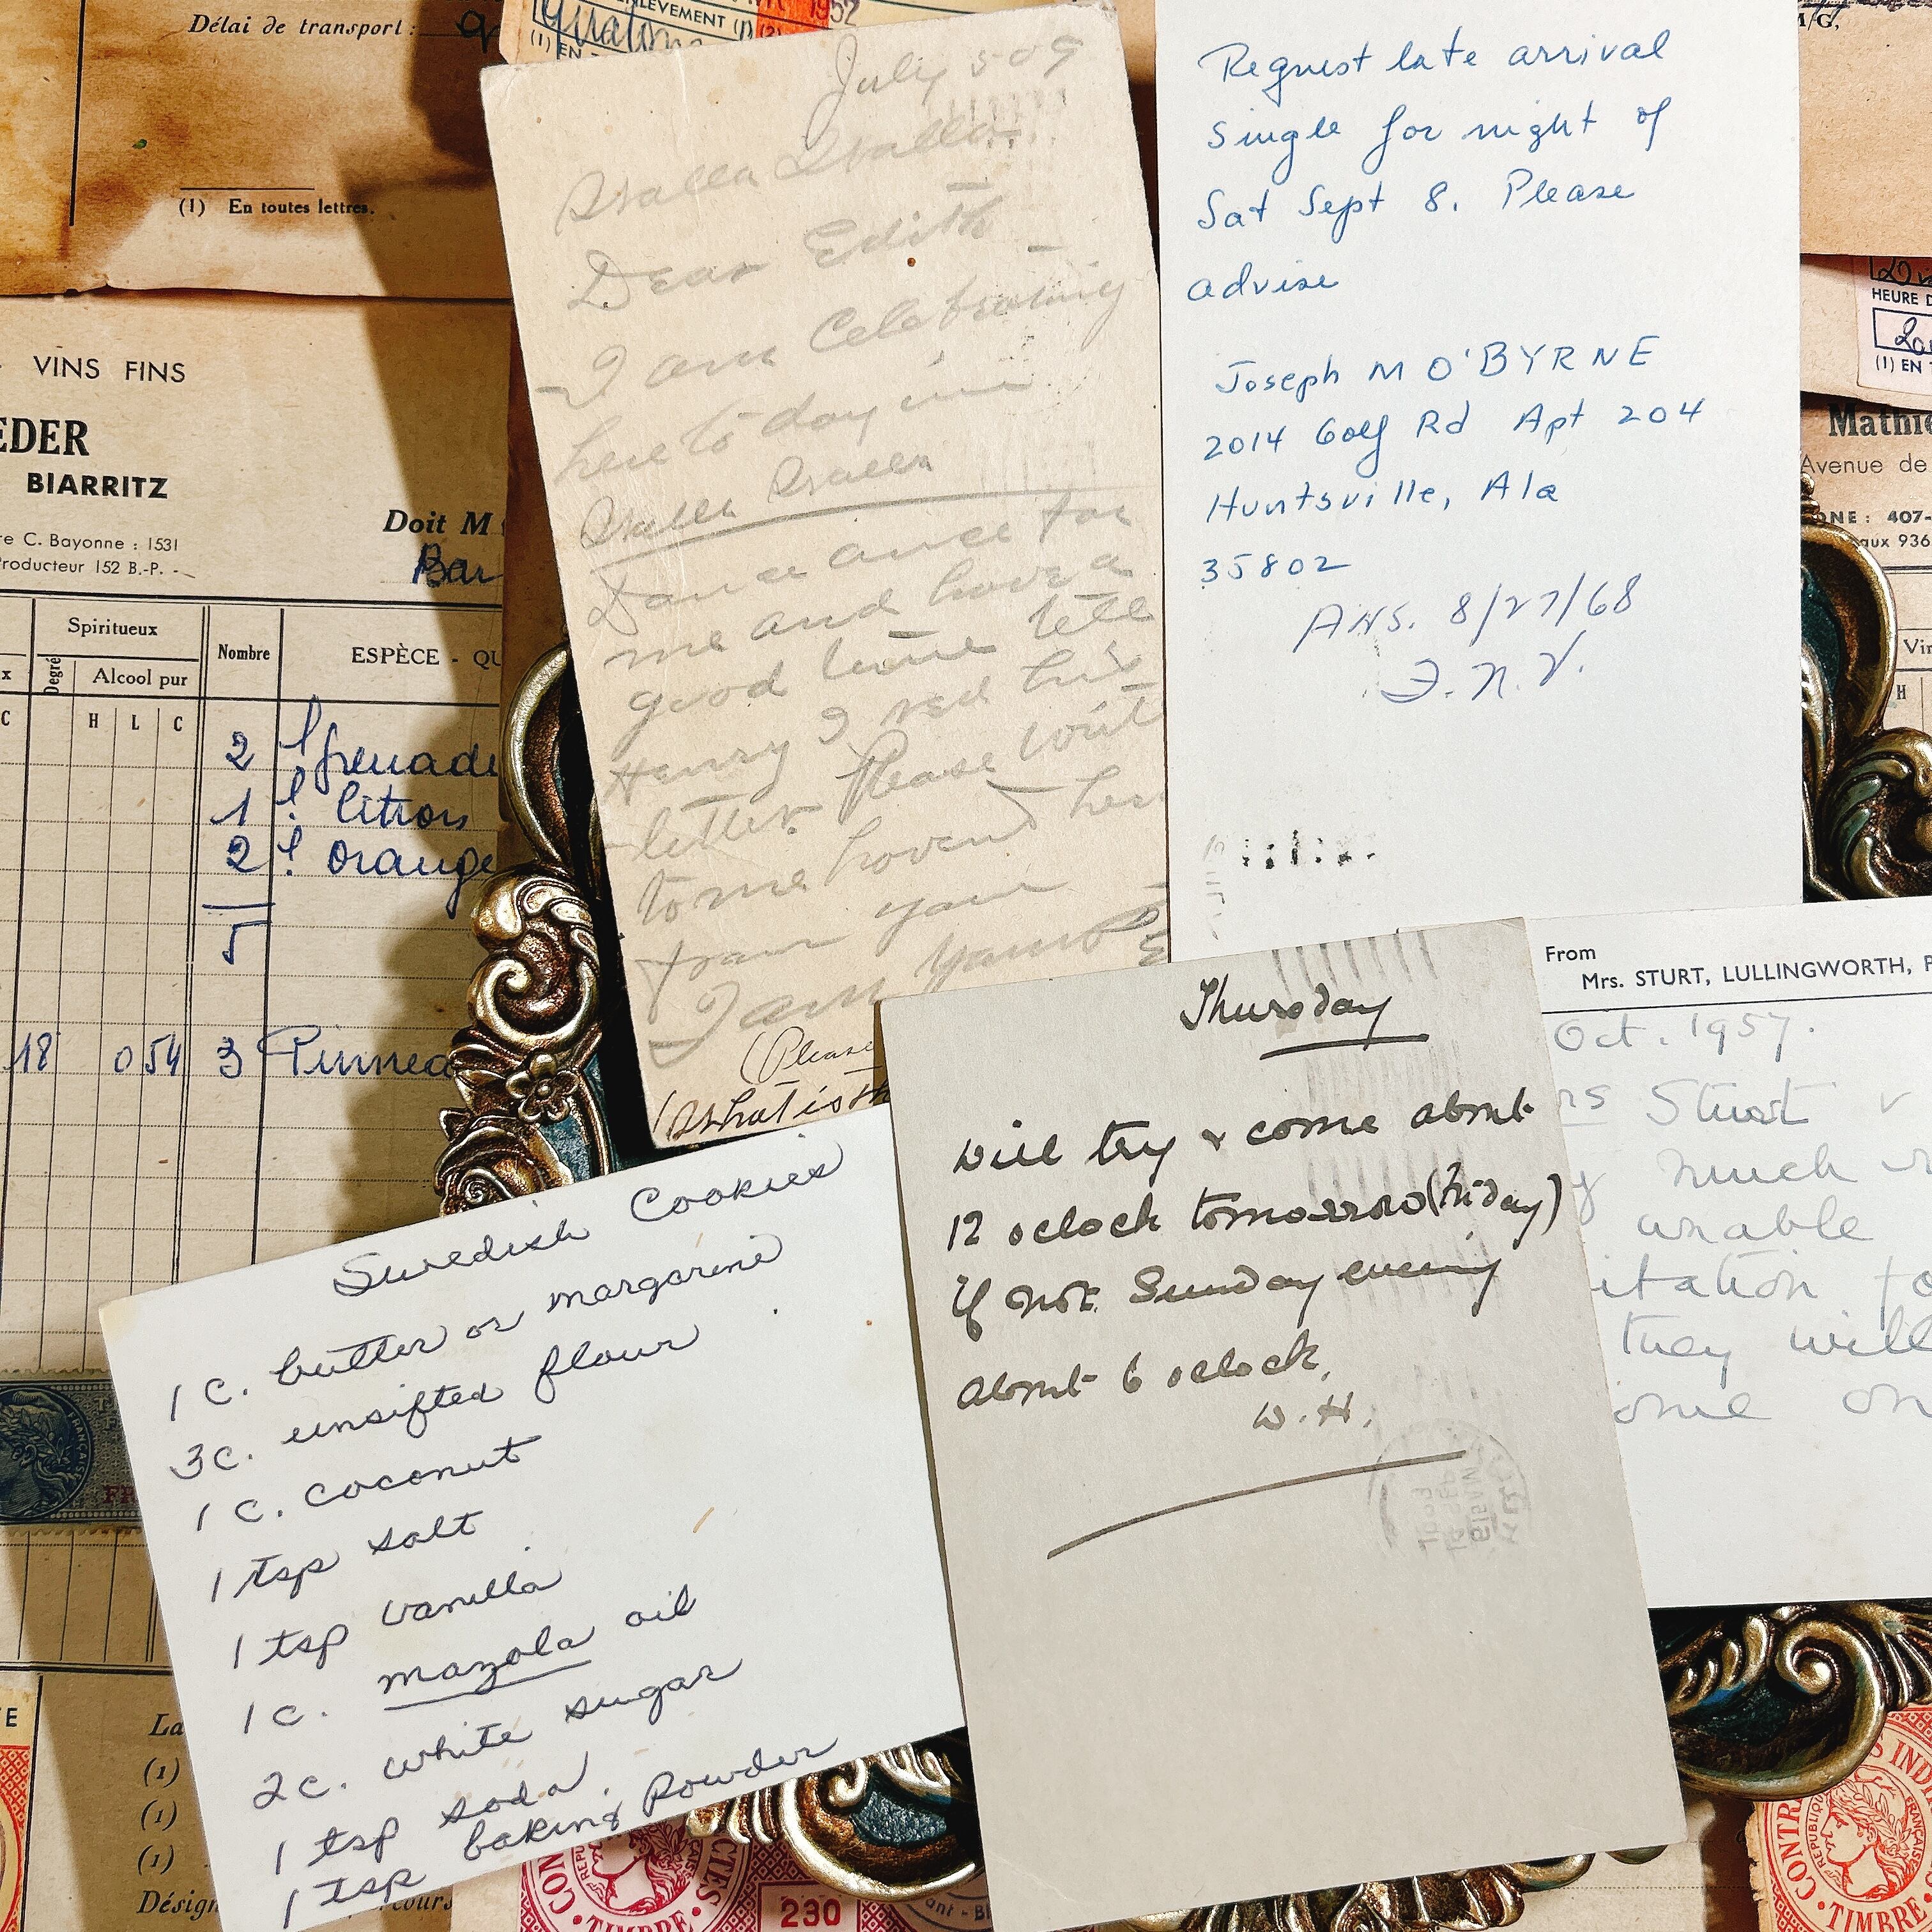 Délai de transport :
(1) En toutes lettres.
VINS FINS
EDER
BIARRITZ
re C. Bayonne : 1531
Producteur 152 B.-P. -
Doit M
Bar
Spiritueux
Degré
Alcool pur
Nombre
ESPÈCE - QU
C H L C
2 l grenadi
1 l. litron
2 l. orange
5
18 0 54 3
ENLÈVEMENT (1)
(1) EN
1952
July 5 09
Walla Walla
Dear Edith
I am Celebrating
here to day in
Walla Walla
Dance once for
me and have a
good time tell
Henry I red his
letter Please writ
to me havend her
from you
I am yours
(Please
(What is th
Request late arrival
Single for night of
Sat Sept 8. Please
advise
Joseph M O'BYRNE
2014 Golf Rd Apt 204
Huntsville, Ala
35802
ANS. 8/27/68
F.N.V.
HEURE D
(1) EN T
Mathie
Avenue de
ONE : 407-
aux 936
Vin
H
From
Mrs. STURT, LULLINGWORTH, P
Oct. 1957.
rs Sturt &
y much r
unable
itation fo
they will
ome on
Thursday
Will try & come about
12 oclock tomorrow (Friday)
if not Sunday evening
about 6 oclock.
W.H.
Swedish Cookies
1 c. butter or margarine
3c. unsifted flour
1 c. coconut
1 tsp salt
1 tsp vanilla
1 c. mazola oil
2 c. white sugar
1 tsp soda
1 tsp baking powder
La
(1)
(1)
(1)
Désign
cours
TIMBRE
230